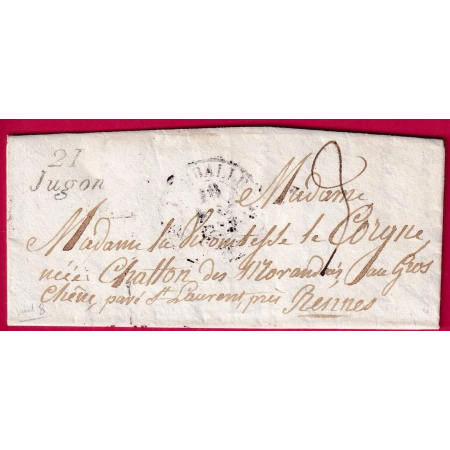 21
Jugon
Madame
Madame la Vicomtesse le Corgne
née Chatton des Morandais, au Gros
Chêne, par St Laurent, près Rennes